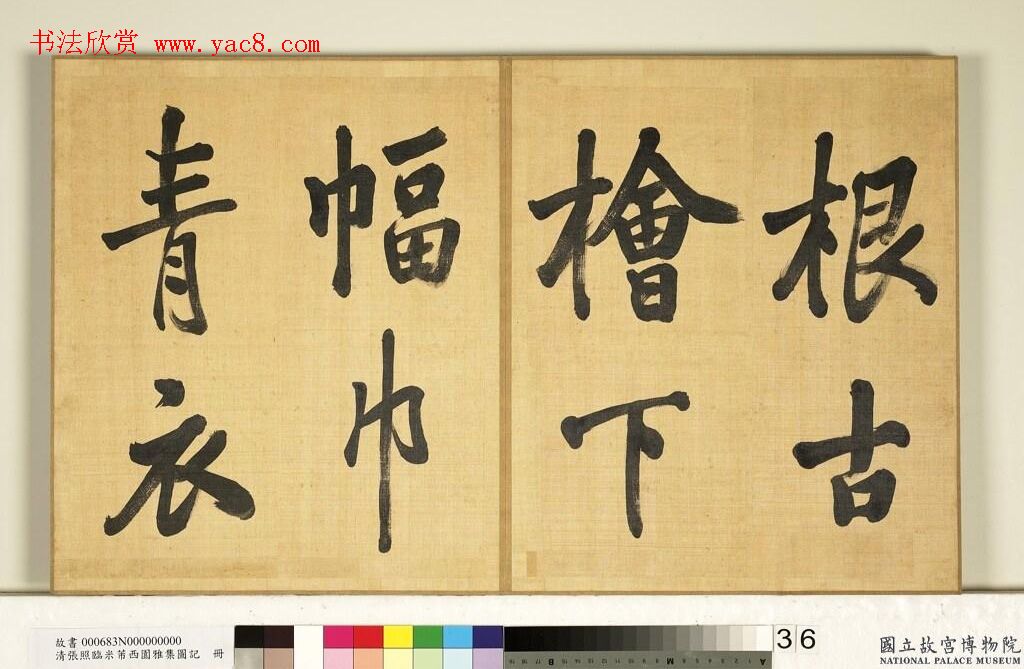 书法欣赏 www.yac8.com
根古
檜下
幅巾
青衣
故書 000683N000000000
清張照臨米芾西園雅集圖記 冊
36
國立故宮博物院
NATIONAL PALACE MUSEUM